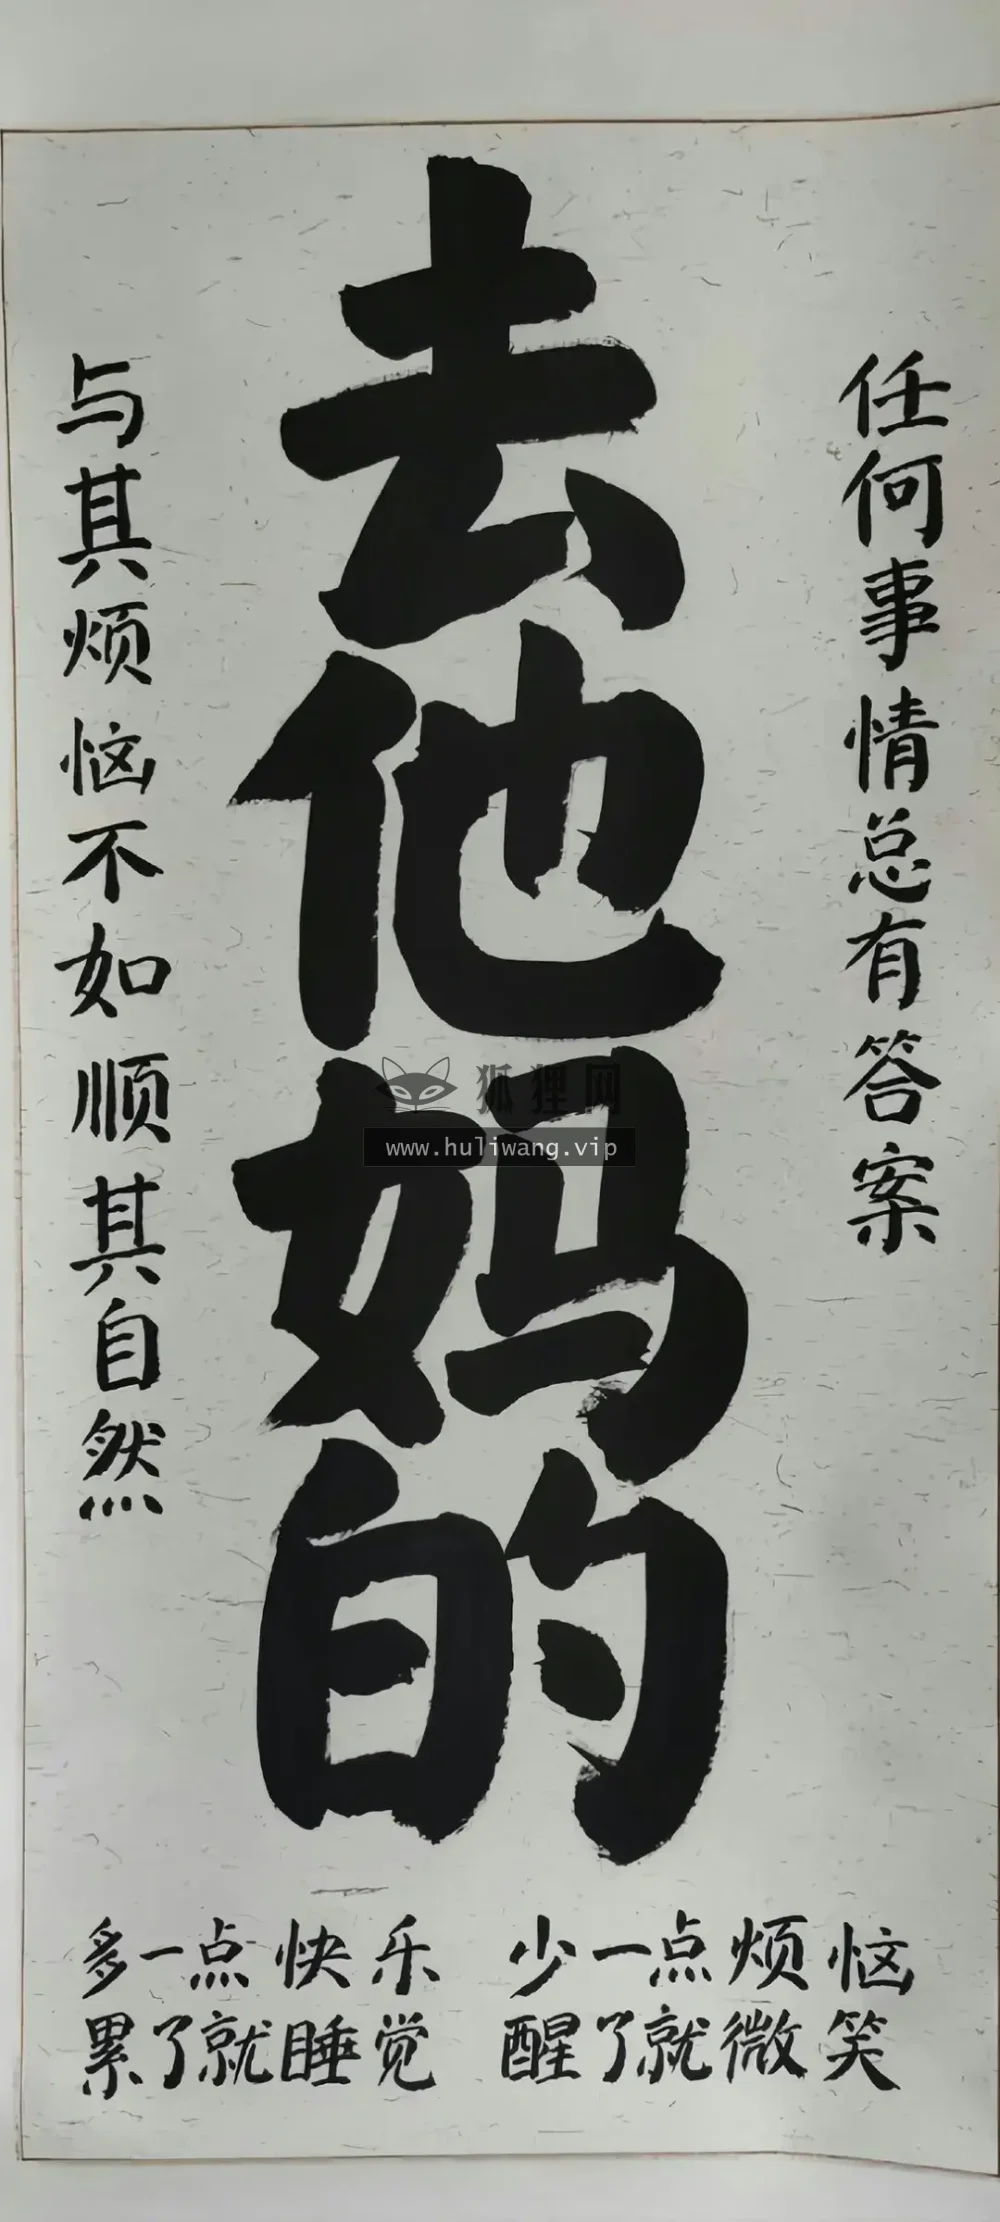 任何事情总有答案
去他妈的
与其烦恼不如顺其自然
多一点快乐 少一点烦恼
累了就睡觉 醒了就微笑
狐狸网
www.huliwang.vip